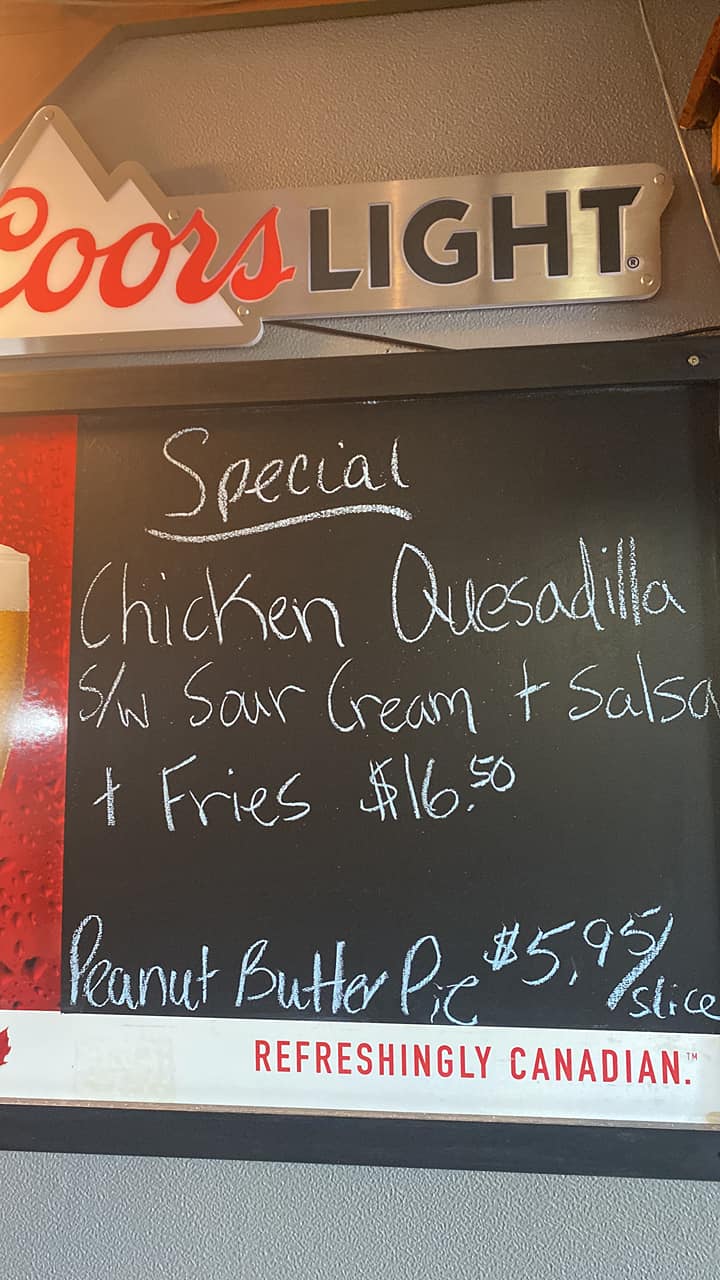 Coors LIGHT®
Special
Chicken Quesadilla
S/W Sour Cream + Salsa
+ Fries $16.50
Peanut Butter Pie $5.95/slice
REFRESHINGLY CANADIAN.™